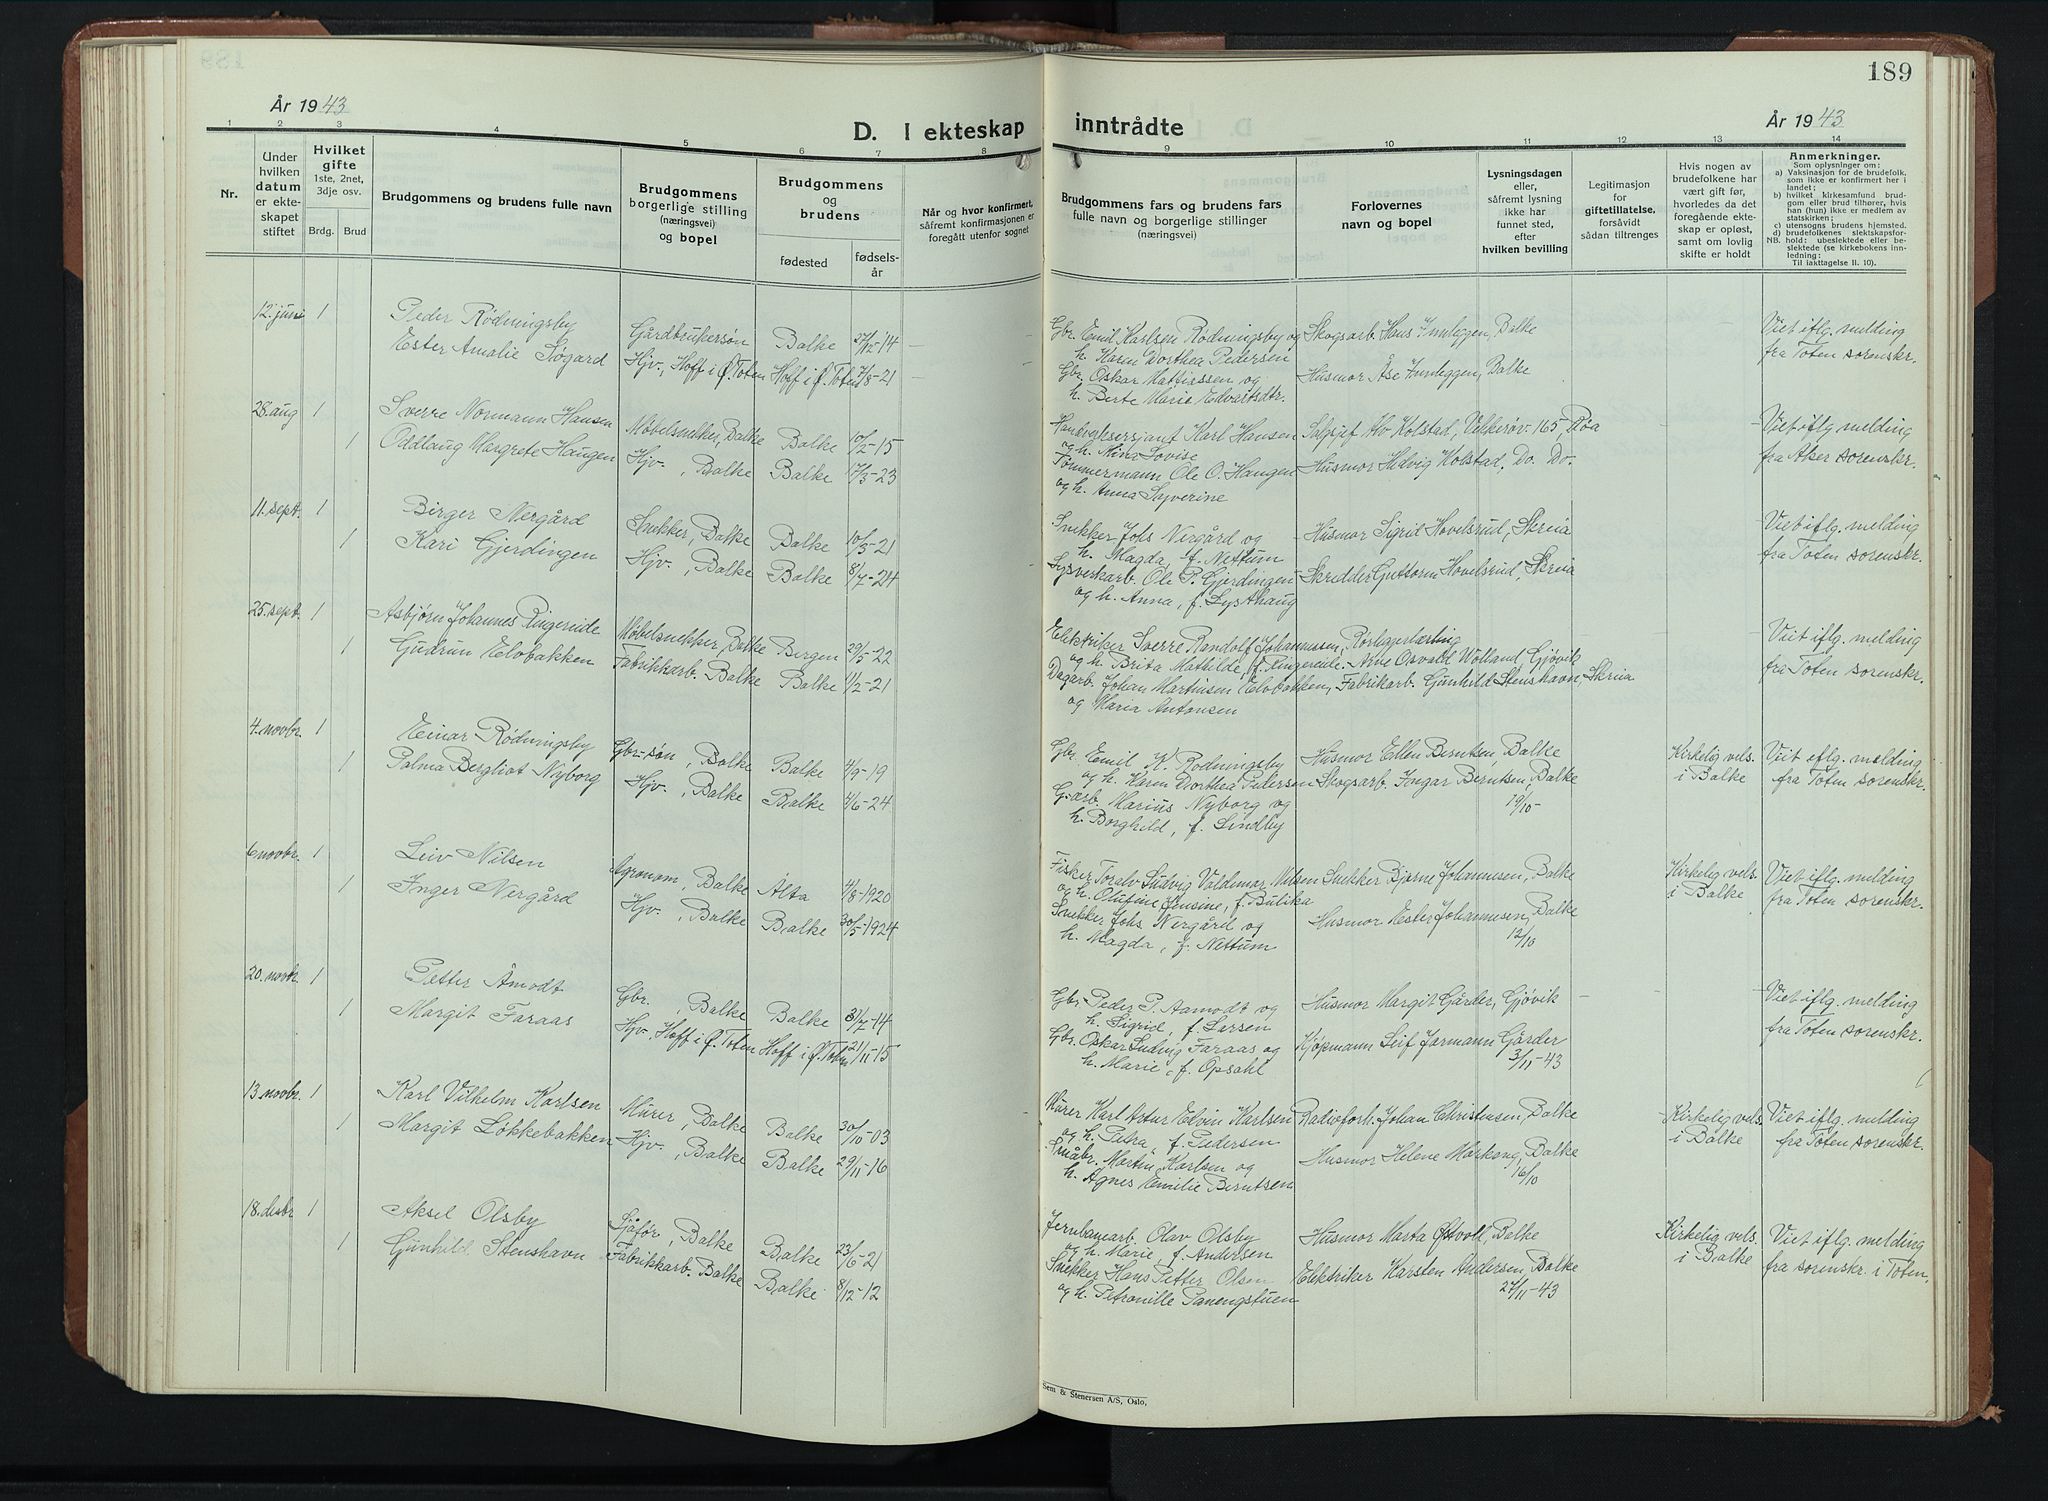 189
År 1943
D. I ekteskap inntrådte
År 1943
1 2 3 4 5 6 7 8 9 10 11 12 13 14
Nr.
Under
hvilken
datum
er ekte-
skapet
stiftet
Hvilket
gifte
1ste, 2net,
3dje osv.
Brdg. Brud
Brudgommens og brudens fulle navn
Brudgommens
borgerlige stilling
(næringsvei)
og bopel
Brudgommens
og
brudens
fødested
fødsels-
år
Når og hvor konfirmert,
såfremt konfirmasjonen er
foregått utenfor sognet
Brudgommens fars og brudens fars
fulle navn og borgerlige stillinger
(næringsvei)
Forlovernes
navn og bopel
Lysningsdagen
eller,
såfremt lysning
ikke har
funnet sted,
efter
hvilken bevilling
Legitimasjon
for
giftetillatelse,
forsåvidt
sådan tiltrenges
Hvis nogen av
brudefolkene har
vært gift før,
hvorledes da det
foregående ekte-
skap er opløst,
samt om lovlig
skifte er holdt
Anmerkninger.
Som oplysninger om:
a) Vaksinasjon for de brudefolk,
som ikke er konfirmert her i
landet;
b) hvilket kirkesamfund brud-
gom eller brud tilhører, hvis
han (hun) ikke er medlem av
statskirken;
c) utensogns brudens hjemsted.
d) brudefolkenes slektskapsfor-
NB. hold: ubeslektede eller be-
slektede (se kirkebokens inn-
ledning:
Til iakttagelse II. 10).
12. juni 1 Peder Rødningsby Gårdbrukersøn Balke 27/12-14
Ester Amalie Søgard Hjv., Hoff i Ø. Toten Hoff i Ø. Toten 7/8-21
Gbr. Emil Karlsen Rødningsby og
h. Karen Dorthea Pedersen
Gbr. Oskar Mathissen og
h. Berte Marie Edvartsdtr.
Skogsarb. Hans Innleggen, Balke
Husmor Åse Innleggen, Balke
Viet iflg. melding
fra Toten sorenskr.
28. aug 1 Sverre Normann Hansen Møbelsnekker, Balke Balke 10/2-15
1 Oddlaug Margrete Haugen Hjv., Balke Balke 17/3-23
Karl Hansen
og h. Nina Lovise
Tømmermann Ole O. Haugen
og h. Anna Syverine
Kolstad, 165, Røa
Husmor Hedvig Kolstad, Do. Do.
Viet iflg melding
fra Aker sorenskr.
11. sept. 1 Birger Nergård Snekker, Balke Balke 10/3-21
1 Kari Gjerdingen Hjv., Balke Balke 8/7-24
Snekker Johs Nergård og
h. Magda, f. Nettum
Ole P. Gjerdingen
og h. Anna, f. Lysthaug
Husmor Sigrid Hovelsrud, Skreia
Skredder Guttorm Hovelsrud, Skreia
Viet iflg. melding
fra Toten sorenskr.
25. sept. 1 Asbjørn Johannes Ringereide Møbelsnekker, Balke Bergen 29/5-22
1 Gudrun Elvbakken Fabrikkarb. Balke Balke 1/2-21
Elektriker Sverre Randolf Johannessen,
og h. Brita Mathilde, f. Ringereide.
Dagarb. Johan Martinsen Elvbakken,
og Maria Antonsen
Rørleggerlærling
Arne Osvald Wølland, Gjøvik
Fabrikarb. Gunhild Stenshavn, Skreia
Viet iflg. melding
fra Toten sorenskr.
4. novbr. 1 Einar Rødningsby Gbr.-søn, Balke Balke 4/9-19
1 Palma Bergliot Nyborg Hjv., Balke Balke 4/6-24
Gbr. Emil K. Rødningsby
og h. Karen Dorthea Pedersen
G.arb. Marius Nyborg og
h. Borghild, f. Lindby
Husmor Ellen Berntsen, Balke
Skogsarb. Ingar Berntsen, Balke
19/10-
Kirkelig vels.
i Balke
Viet iflg. melding
fra Toten sorenskr.
6. novbr. 1 Leiv Nilsen Agronom, Balke Alta 4/8-1920
1 Inger Nergård Hjv., Balke Balke 30/5-1924
Fisker Toralv Ludvig Valdemar Nilsen
og h. Olufine Jensine, f. Bulika
Snekker Johs. Nergård og
h. Magda, f. Nettum
Snekker Bjarne Johannesen, Balke
Husmor Ester Johannesen, Balke
12/10
Kirkelig vels.
i Balke
Viet iflg. melding
fra Toten sorenskr.
20. novbr. 1 Petter Åmodt Gbr., Balke Balke 31/7-14
1 Margit Faraas Hjv., Hoff i Ø. Toten Hoff i Ø. Toten 21/11-15
Gbr. Peder P. Aamodt og
h. Sigrid, f. Larsen
Gbr. Oskar Ludvig Faraas og
h. Marie, f. Opsahl
Husmor Margit Gårder, Gjøvik
Kjøpmann Leif Jarmann Gårder
3/11-43
Viet iflg. melding
fra Toten sorenskr.
13. novbr. 1 Karl Vilhelm Karlsen Murer, Balke Balke 30/10-03
1 Margit Løkkebakken Hjv., Balke Balke 29/11-16
Murer Karl Artur Elvin Karlsen
og h. Petra, f. Pedersen
Småbr. Martin Karlsen og
h. Agnes Emilie Berntsen
Radioforh. Johan Christensen, Balke
Husmor Helene Markeng, Balke
16/10
Kirkelig vels.
i Balke
Viet iflg. melding
fra Toten sorenskr.
18. desbr 1 Aksel Olsby Sjåfør, Balke Balke 23/6-21
1 Gunhild Stenshavn Fabrikkarb. Balke Balke 8/12-12
Jernbanearb. Olav Olsby
og h. Marie, f. Andersen
Snekker Hans Petter Olsen
og h. Petronille Panengstuen
Husmor Marta Østvoll, Balke
Elektriker Karsten Andersen, Balke
27/11-43
Kirkelig vels.
i Balke
Viet iflg. melding
fra sorenskr. i Toten.
Sem & Stenersen A/S, Oslo.